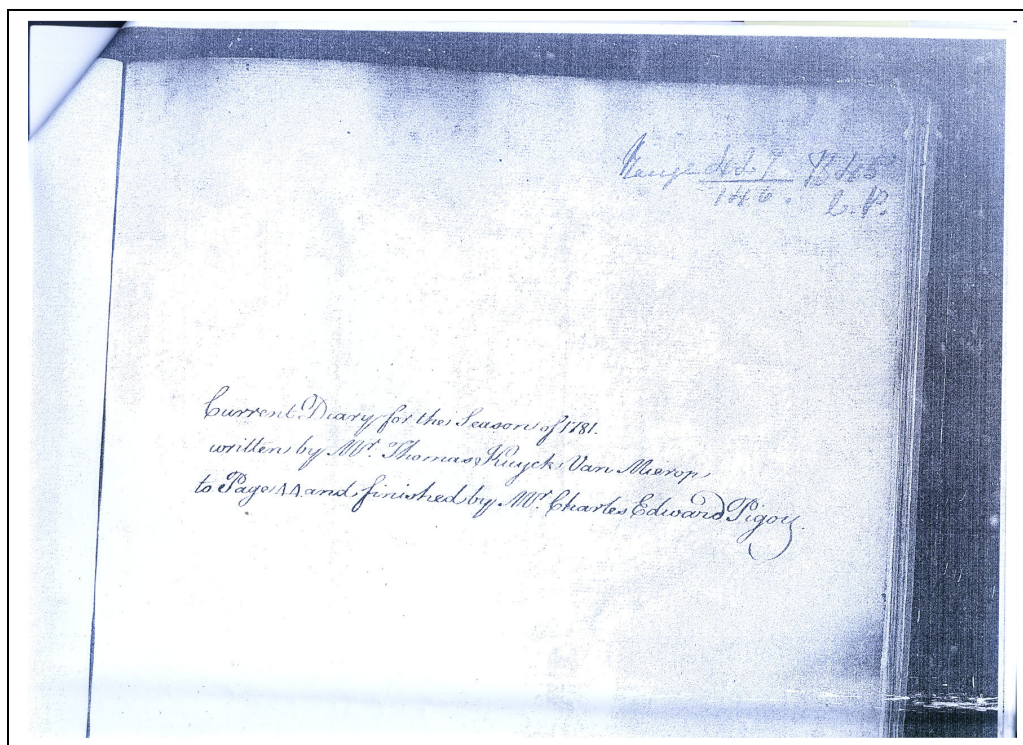 Current Diary for the Season of 1781.
written by Mr. Thomas Kuyck Van Mierop
to Page 44 and finished by Mr. Charles Edward Pigou.
146. C.P.